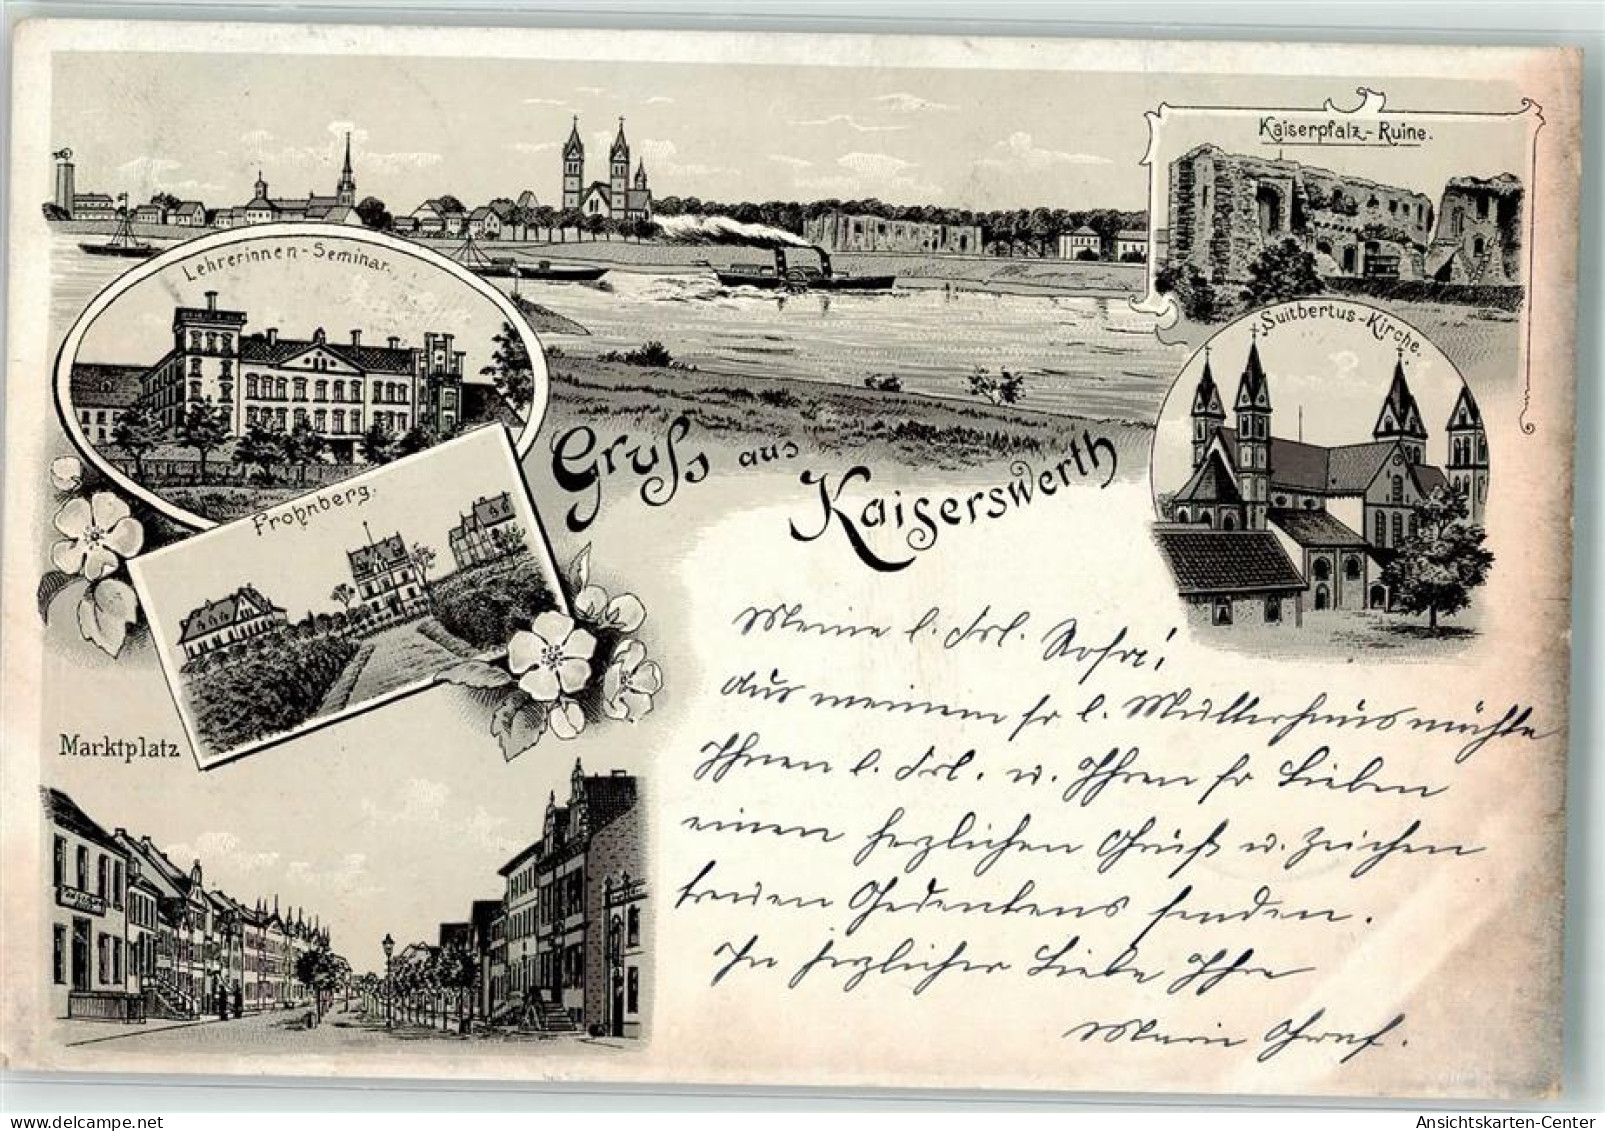 Kaiserpfalz-Ruine.
Lehrerinnen-Seminar.
Suitbertus-Kirche.
Gruss aus
Kaiserswerth
Frohnberg.
Marktplatz
Meine l. Frl. Rosa!
Aus meinem so l. Mutterhaus möchte
Ihnen l. Frl. u. Ihren so Lieben
einen herzlichen Gruß u. Zeichen
treuen Gedenkens senden.
In herzlicher Liebe Ihre
Marie
Ansichtskarten-Center